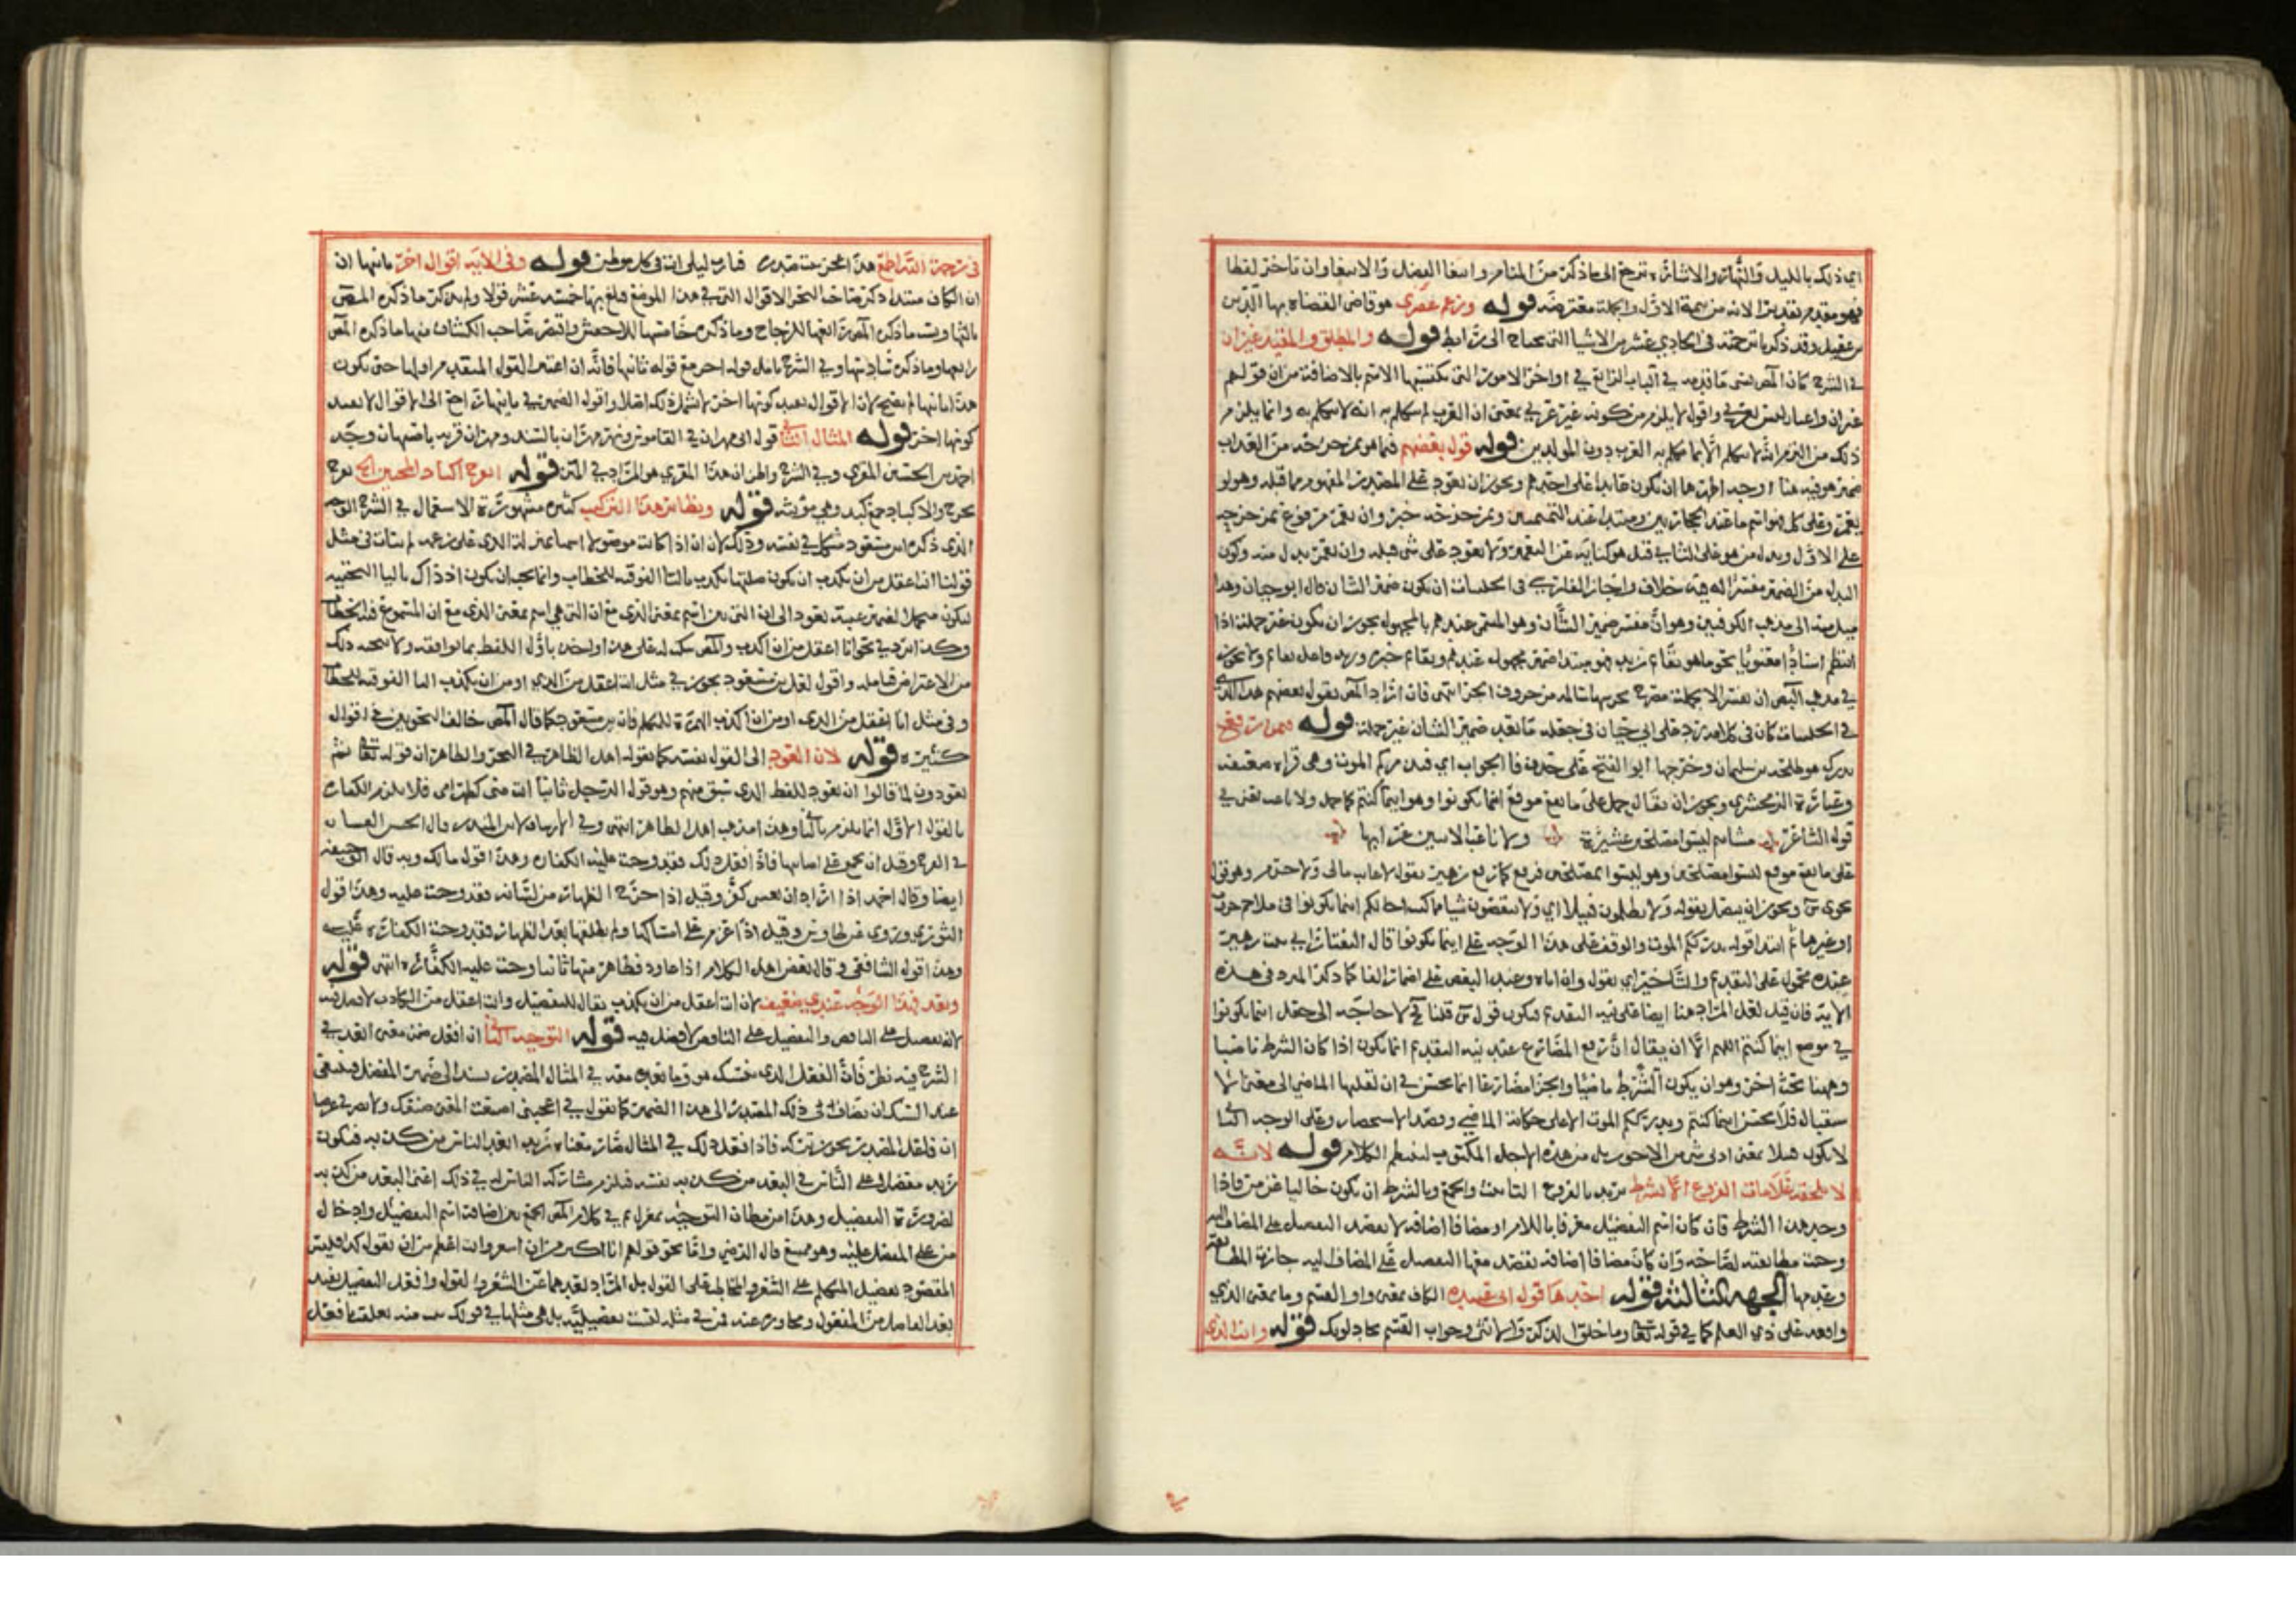 اي ذلك بالليل والنهار والاشارة ترجع الى ما ذكر من المنام وابتغا الفضل والابتغا وان تاخر لفظا
فهو مقدم تقديرا لانه من تتمة الاول والجملة معترضة قوله وزعم عصرى هو قاضي القضاة بها الدين
بن عقيل وقد ذكرنا ترجمته في الحادي عشر من الاشيا التي تحتاج الى رابط قوله والمطلق والمقيد غيران
في الشرح كان المص نسي ما قدمه في الباب الرابع في اواخر الامور التي يكتسبها الاسم بالاضافة من ان قولهم
غيران واعبار ليس بعربي واقول لا يلزم من كونه غير عربي بمعنى ان العرب لم تتكلم به انه لا يتكلم به وانما يلزم
ذلك من التزم انه لا يتكلم الا بما تكلم به العرب دون المولدين قوله قول بعضهم فما هو بمزحزحه من العذاب
ضمير هو فيه هنا اوجه اظهرها ان يكون عايدا على احدهم ويجوز ان يعود على المصدر المفهوم مما قبله وهو لو
يعمر وعلى كل هو اسم ما عند الحجازيين ومبتدا عند التميميين وبمزحزحه خبر وان يعمر مرفوع بمزحزحه
على الاول وبدل من هو على الثاني قيل هو كناية عن التعمير ولا يعود على شي قبله وان يعمر بدل منه وكون
البدل من الضمير مفسرا له فيه خلاف واجاز الفارسي في الحلبيات ان يكون ضمير الشان قال ابو حيان وهذا
ميل منه الى مذهب الكوفيين وهو ان مفسر ضمير الشان وهو المسمى عندهم بالمجهول يجوز ان يكون غير جملة اذا
انتظم اسنادا معنويا نحو ما هو بقائم زيد فهو مبتدا ضمير مجهول عندهم وبقائم خبره وزيد فاعل بقائم ولا يجوز
في مذهب البصر ان يفسر الا بجملة مصرح بجزيها سالمة من حروف الجر انتهى فان اراد المص بقول بعضهم هذا الذي
في الحلبيات كان في كلامه رد على ابي حيان في جعله ما بعد ضمير الشان غير جملة قوله فيمن رفع
يدرك هو طلحة بن سليمان وخرجها ابو الفتح على حذف فا الجواب اي فيدرككم الموت وهي قراءة ضعيفة
وعبارة الزمخشري ويجوز ان يقال حمل على ما يقع موقع اينما تكونوا وهو اينما كنتم كما حمل ولا ناعب يعني في
قول الشاعر مشائيم ليسوا مصلحين عشيرة ولا ناعبا الا ببين غرابها
على ما يقع موقع ليسوا مصلحين وهو ليسوا بمصلحين فرفع كما رفع زهير يقول لا غائب مالي ولا حرم وهو قول
نحوي س ويجوز ان يتصل بقوله ولا يظلمون فتيلا اي ولا ينقصون شيا مما كتب اجالكم اينما تكونوا في ملاحم حروب
او غيرها ثم ابتدا قوله يدرككم الموت والوقف على هذا الوجه على اينما تكونوا قال التفتازاني بيت زهير
عنده محمول على التقديم والتاخير اي يقول وان اتاه وعند البعض على اضمار الفا كما ذكر المبرد في هذه
الاية فان قيل لعل المراد هنا ايضا على نية التقديم فيكون قول س قلنا فح لا حاجة الى جعل اينما تكونوا
في موضع اينما كنتم اللهم الا ان يقال ان رفع المضارع عند نية التقديم انما يكون اذا كان الشرط ماضيا
وههنا بحث اخر وهو ان يكون الشرط ماضيا والجزا مضارعا انما يحسن في ان لقلبها الماضي الى معنى الا
ستقبال فلا يحسن اينما كنتم ويدرككم الموت الا على حكاية الماضي وقصد الاستحضار وعلى الوجه الثاني
لا يكون فتيلا بمعنى ادنى شي من الاجور بل من هذه الاجل المكتوب لينتظم الكلام قوله لانه
لا تلحقه علامات الفروع الا بشرط يريد بالفروع التانيث والجمع وبالشرط ان يكون خاليا عن من فاذا
وجد هذا الشرط فان كان اسم التفضيل معرفا باللام او مضافا اضافة لا يقصد التفضيل على المضاف اليه
وجب مطابقته لصاحبه وان كان مضافا اضافة يقصد معها التفضيل على المضاف اليه جازت المطابقة
وعدمها الجهة الثالثة قوله احدها قوله ابن قتيبة الكاف بمعنى واو القسم وما بمعنى الذي
واقعة على ذي العلم كما في قوله تعالى وما خلق الذكر والانثى وجواب القسم يجادلونك قوله وانت الذي
في رحمة الله اطمع هذا عجز بيت صدره فيارب ليلى انت في كل موطن قوله وفي الاية اقوال اخر ثانيها ان
ان الكاف مبتدا ذكر صاحب البحر الاقوال التي في هذا الموضع فبلغ بها خمسة عشر قولا ولم يذكر ما ذكره المص
ثالثها ونسب ما ذكره المص رابعها للزجاج وما ذكره خامسها للاخفش واقتصر صاحب الكشاف منها ما ذكره المص
رابعها وما ذكره سادسها وفي الشرح تامل قوله اخر مع قوله ثانيها فانه ان اعتبر القول المتقدم اولها حتى يكون
هذا ثانيها لم يصح لان الاقوال بقيد كونها اخر لا تشمل ذلك انتهى واقول الضمير في ثانيها راجع الى الاقوال لا بقيد
كونها اخر قوله المثال الثاني قول ابن مهران في القاموس ونهر مهران بالسند ومهران قرية باصبهان وجد
احمد بن الحسين المقري وفي الشرح واظن ان هذا المقري هو المراد في المتن قوله انوح اكباد المحبين الخ نوح
بجرح والاكباد جمع كبد وهي مؤنثة قوله ونظائر هذا التركيب كثيرة مشهورة الاستعمال في الشرح الوجه
الذي ذكره ابن مسعود مشكل في نفسه وذلك لان ان اذا كانت موصولا اسما بمنزلة الذي على زعمه لم يتات في مثل
قولنا انت اعقل من ان تكذب ان يكون صلتها تكذب بالتا الفوقية للخطاب وانما يجب ان يكون اذ ذاك باليا التحتية
ليكون متحملا لضمير غيبة يعود الى ان التي هي اسم بمعنى الذي مع ان المسموع فيه الخطاب
وكذا ترد في نحو انا اعقل من ان اكذب والمص سكت له على هذا واخذ باول اللفظ بما يوافقه ولا يتجه ذلك
من الاعتراض قبله واقول لعل بن مسعود يجوز في مثل انت اعقل من الذي او من ان يكذب التا الفوقية للخطاب
وفي مثل انا اعقل من الذي او من ان اكذب الهمزة للتكلم فان بن مسعود كما قال المص خالف النحويين في اقوال
كثيرة قوله لان العود الى القول نفسه كما يقوله اهل الظاهر في البحر والظاهر ان قوله تعالى ثم
يعودون لما قالوا ان يعود للفظ الذي سبق منهم وهو قول الرجل ثانيا انت مني كظهر امي فلا يلزم الكفارة
بالقول الاول انما يلزم بالثاني وهذا مذهب اهل الظاهر انتهى وفي الارشاد لابن المنذر قال الحسن العود
في الفرج وقيل ان يجمع على امساكها فاذا فعل ذلك فقد وجبت عليه الكفارة وهذا قول مالك وبه قال ابو حنيفة
ايضا وقال احمد اذا اراد ان يغشى كفر وقيل اذا خرج الظهار من لسانه فقد وجبت عليه وهذا قول
الثوري وروي عن طاوس وقيل اذا عزم على امساكها ولم يطلقها بعد الظهار فقد وجبت الكفارة عليه
وهذا قول الشافعي وقال بعض اهل الكلام اذا عاود فظاهر منها ثانيا وجبت عليه الكفارة انتهى قوله
وبعد فهذا الوجه عندي ضعيف لان انت اعقل من ان يكذب يقال للتفضيل وانت اعقل من الكاذب لا فضل فيه
لانه تفضيل على الناقص والتفضيل على الناقص لا فضل فيه قوله التوجيه الثاني ان افعل ضمن معنى ابعد في
الشرح فيه نظر فان الفعل الذي يسبك هو وما بعده معه في المثال المصدر مسند الى ضمير المفضل فينبغي
عند السبك ان يضاف ذلك المصدر الى هذا الضمير كما تقول في اعجبني
ان فاعل المصدر يجوز تركه فاذا فعل ذلك في المثال صار معناه زيد ابعد الناس من كذبه فيكون
زيد مفضلا على الناس في البعد من كذبه نفسه فيلزم مشاركة الناس له في ذلك اعني البعد من كذبه
لضرورة التفضيل وهذا من مظان التوجيه بمعزل ثم في كلام المص الجمع بين اضافة اسم التفضيل وادخال
من على المفضل عليه وهو ممتنع قال الرضي واما نحو قولهم انا اكبر من ان اشعر وانت اعظم من ان تقول كذا فليس
المقصود تفضيل المتكلم على الشعر والمخاطب على القول بل المراد بعدهما عن الشعر والقول وافعل التفضيل يفيد
بعد الفاضل من المفضول وتجاوزه عنه فمن في مثله ليست تفضيلية بل هي مثلها في قولك بنت منه تعلقت بافعل